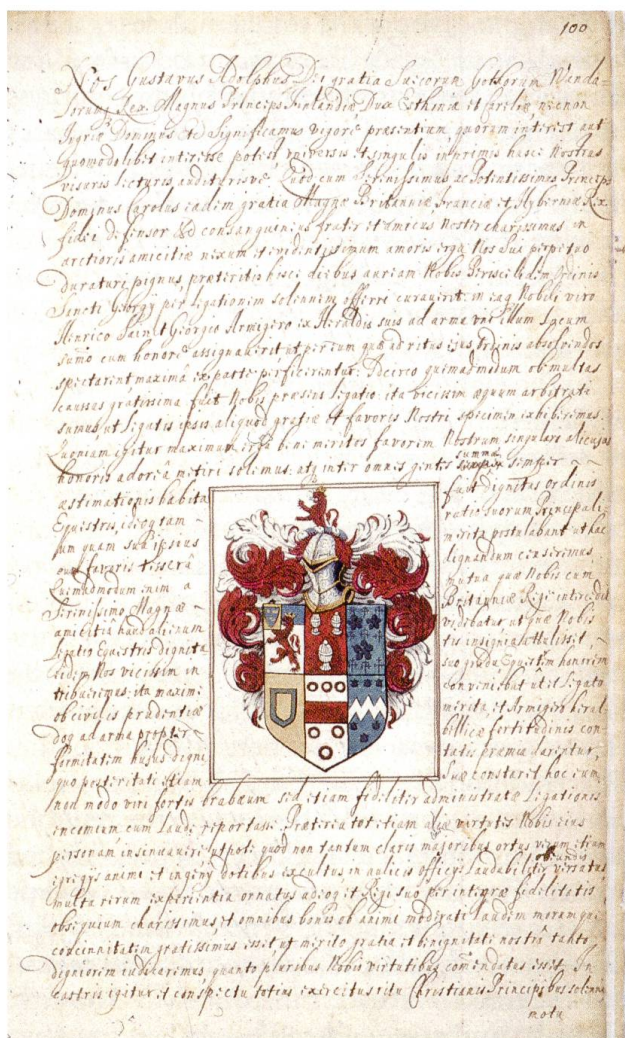 100
Nos Gustavus Adolphus Dei gratia Suecorum Gothorum Wanda-
lorumq Rex Magnus Princeps Finlandiæ Dux Esthoniæ et Careliæ necnon
Ingriæ Dominus etc Significamus vigore præsentium quorum interest aut
quomodolibet interesse potest, universis et singulis inprimis hasce Nostras
visuris lecturis audituris ve Quod cum Serenissimus ac Potentissimus Princeps
Dominus Carolus eadem gratia Magnæ Britanniæ, Franciæ et Hyberniæ Rex
fidei defensor & consanguineus frater et amicus Noster charissimus in
arctioris amicitiæ nexum et evidentissimum amoris erga Nos sua perpetuo
duraturi pignus, præteritis hisce diebus auream Nobis Periscelidem Ordinis
Sancti Georgy per legationem solennem offerre curaverit: in eaq Nobili viro
Henrico Sainct Georgeo Armigero ex Heraldis suis ad arma locum
summo cum honore assignaverit ut per eum quæ ad ritus ejus ordinis absolvendos
spectarent maxima ex parte perficerentur: Idcirco quemadmodum ob multas
caussas gratissima fuit Nobis præsens legatio: ita vicissim æquum arbitrati
sumus ut legatis ipsis aliquod gratiæ et favoris Nostri specimen exhiberemus.
Quoniam igitur maximum erga bene meritos favorem Nostrum singulari alicujus
honoris adorea metiri solemus: atq inter omnes gentes summa semper
æstimationis habita fuit dignitas ordinis
Equestris, ideoq tam ratio suorum Principali
um quam sua ipsius merita postulabant ut hac
eum favoris tessera dignandum censeremus
Quemadmodum enim a mutua quæ Nobis cum
Serenissimo Magnæ Britanniæ Rege intercedit
amicitia haud alienum videbatur ut quæ Nobis
Legatio Equestris dignita tis insignia attulisset,
eidem Nos vicissim in suo gradu Equestrem honorem
tribueremus: ita maxime conveniebat ut et Legato
ob civilis prudentiæ merita, et Armigero heral
doq ad arma propter bellicæ fortitudinis con
formitatem hujus digni tatis præmia darentur,
quo posteritati etiam suæ constaret hoc eum
non modo viri fortis brabæum sed etiam fideliter administratæ Legationis
encomium cum laude reportasse. Præterea tot etiam aliæ virtutes Nobis ejus
personam insinuavere utpote quod non tantum claris majoribus ortus verum etiam
egregys animi et ingeny dotibus excultus in aulicis officys laudabiliter versatus
multa rerum experientia ornatus adeoq et Regi suo per integræ fidelitatis
obsequium charissimus et omnibus bonis ob animi moderati laudem morumque
concinnitatem gratissimus esset ut merito gratia et benignitate nostra tanto
digniorem judicaremus, quanto pluribus Nobis virtutibus commendatus esset. In
castris igitur et conspectu totius exercitus ritu Christianis Principibus solenni
motu